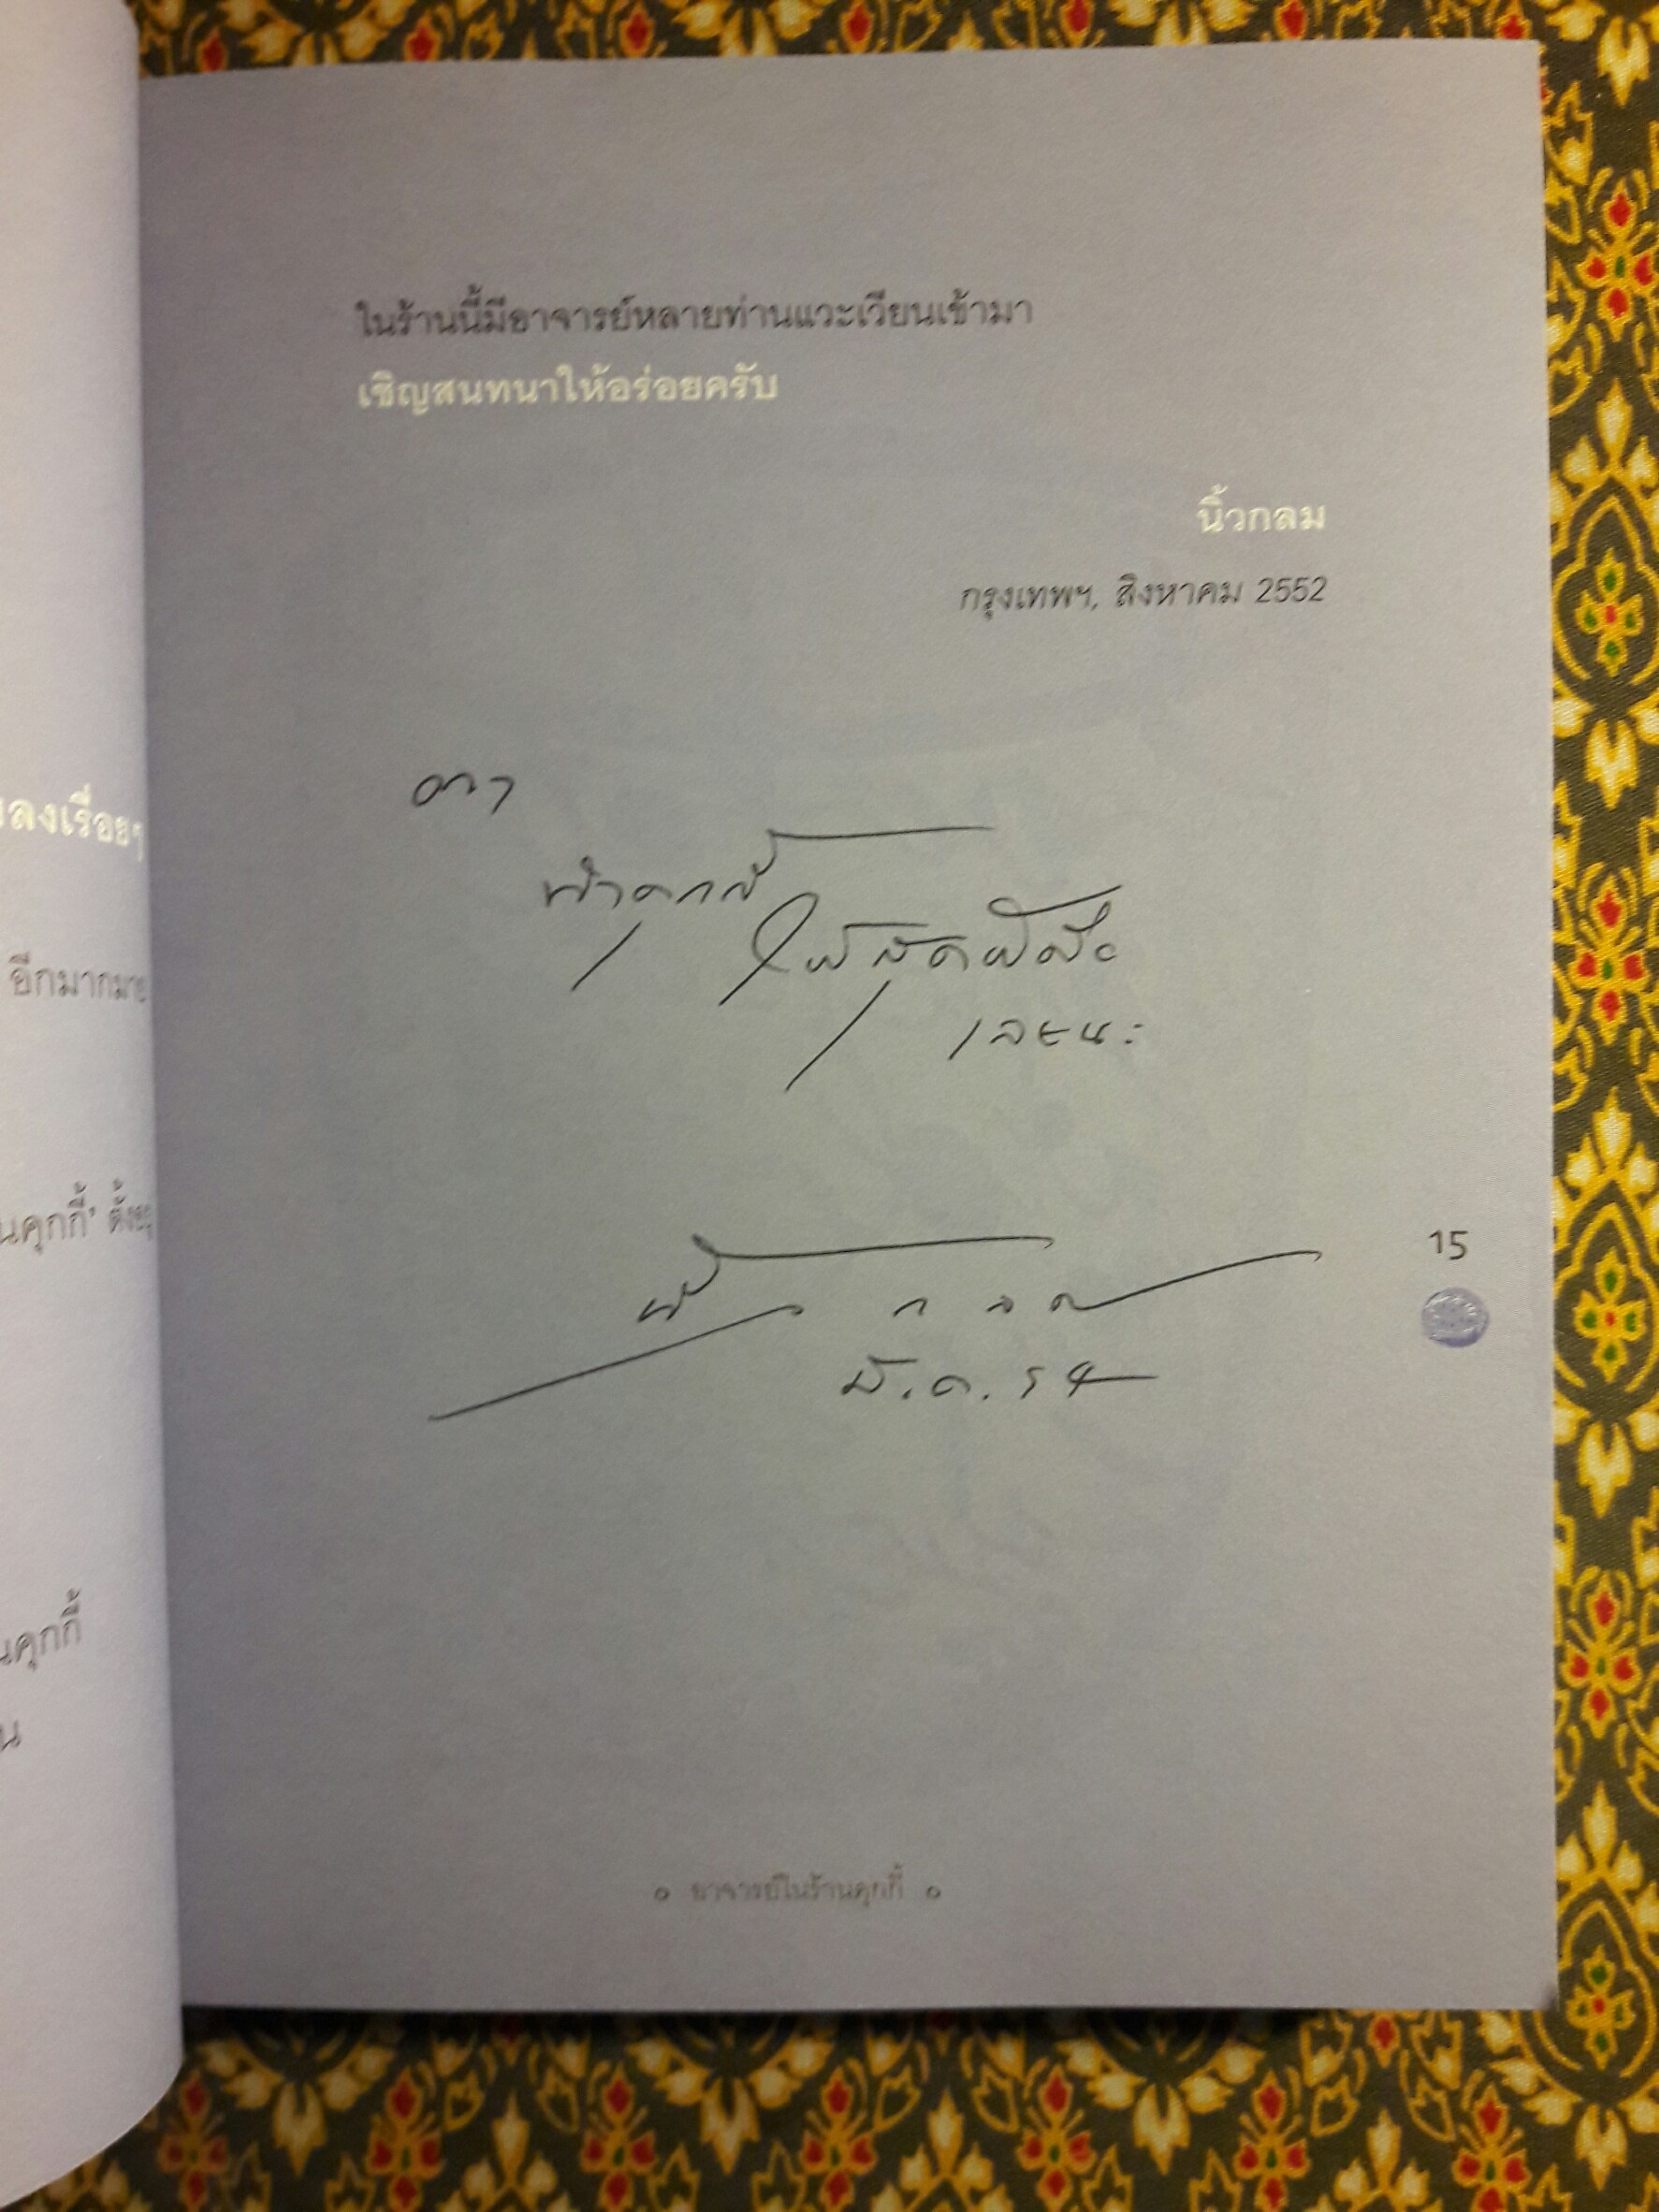 ในร้านนี้มีอาจารย์หลายท่านแวะเวียนเข้ามา
เชิญสนทนาให้อร่อยครับ
นิ้วกลม
กรุงเทพฯ, สิงหาคม 2552
ตาว
ทำคุกกี้
ให้สุดฝีมือ
เลยนะ
นิ้วกลม
มี.ค. 54
15
อาจารย์ในร้านคุกกี้
ลงเรื่อยๆ
อีกมากมาย
นคุกกี้' ตั้งอยู่
นคุกกี้
น